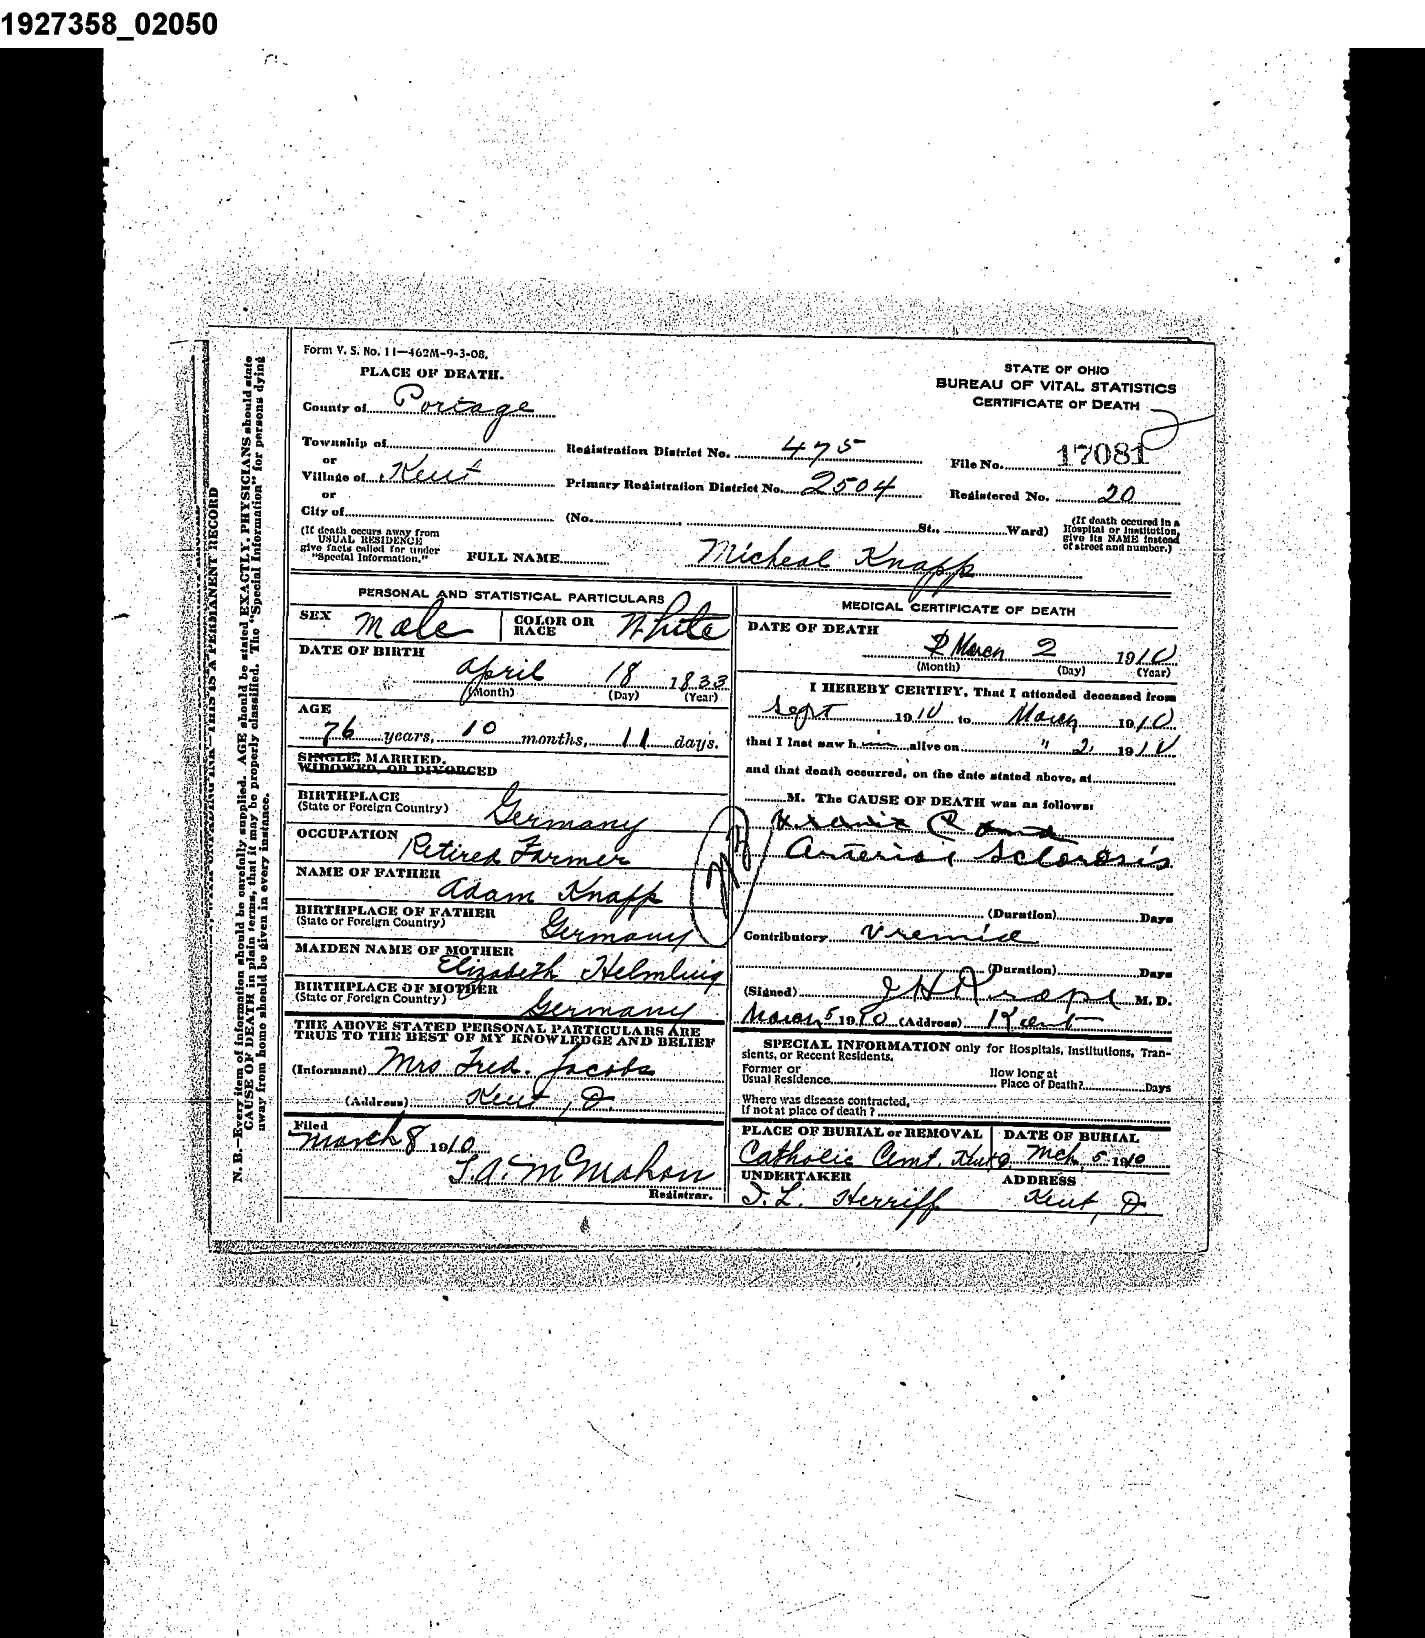 1927358_02050
Form V. S. No. 11—462M-9-3-08.
PLACE OF DEATH.
STATE OF OHIO
BUREAU OF VITAL STATISTICS
CERTIFICATE OF DEATH
County of Portage
Township of
Registration District No. 475
File No. 17081
or
Village of Kent
Primary Registration District No. 2504
Registered No. 20
or
City of
(No. St., Ward)
(If death occured in a Hospital or Institution, give its NAME instead of street and number.)
(If death occurs away from USUAL RESIDENCE give facts called for under "Special Information.")
FULL NAME Micheal Knapp
PERSONAL AND STATISTICAL PARTICULARS
SEX Male
COLOR OR RACE White
DATE OF BIRTH
April 18 1833
(Month) (Day) (Year)
AGE
76 years, 10 months, 11 days.
SINGLE, MARRIED,
WIDOWED, OR DIVORCED
BIRTHPLACE
(State or Foreign Country) Germany
OCCUPATION
Retired Farmer
NAME OF FATHER
Adam Knapp
BIRTHPLACE OF FATHER
(State or Foreign Country) Germany
MAIDEN NAME OF MOTHER
Elizabeth Helmling
BIRTHPLACE OF MOTHER
(State or Foreign Country) Germany
THE ABOVE STATED PERSONAL PARTICULARS ARE
TRUE TO THE BEST OF MY KNOWLEDGE AND BELIEF
(Informant) Mrs Fred. Jacobs
(Address) Kent, O.
Filed
March 8 1910
Registrar.
MEDICAL CERTIFICATE OF DEATH
DATE OF DEATH
March 2 1910
(Month) (Day) (Year)
I HEREBY CERTIFY, That I attended deceased from
Sept 1910 to March 1910
that I last saw him alive on " 2 1910
and that death occurred, on the date stated above, at
M. The CAUSE OF DEATH was as follows:
Sclerosis
(Duration) Days
Contributory Uremia
(Duration) Days
(Signed) M. D.
March 5 1910 (Address) Kent
SPECIAL INFORMATION only for Hospitals, Institutions, Tran-
sients, or Recent Residents.
Former or
Usual Residence
How long at
Place of Death? Days
Where was disease contracted,
If not at place of death?
PLACE OF BURIAL or REMOVAL
DATE OF BURIAL
Catholic Cemt. Kent O.
Mch. 5 1910
UNDERTAKER
ADDRESS
Herriff
Kent, O.
THIS IS A PERMANENT RECORD
N. B.—Every item of information should be carefully supplied. AGE should be stated EXACTLY. PHYSICIANS should state
CAUSE OF DEATH in plain terms, that it may be properly classified. The "Special Information" for persons dying
away from home should be given in every instance.